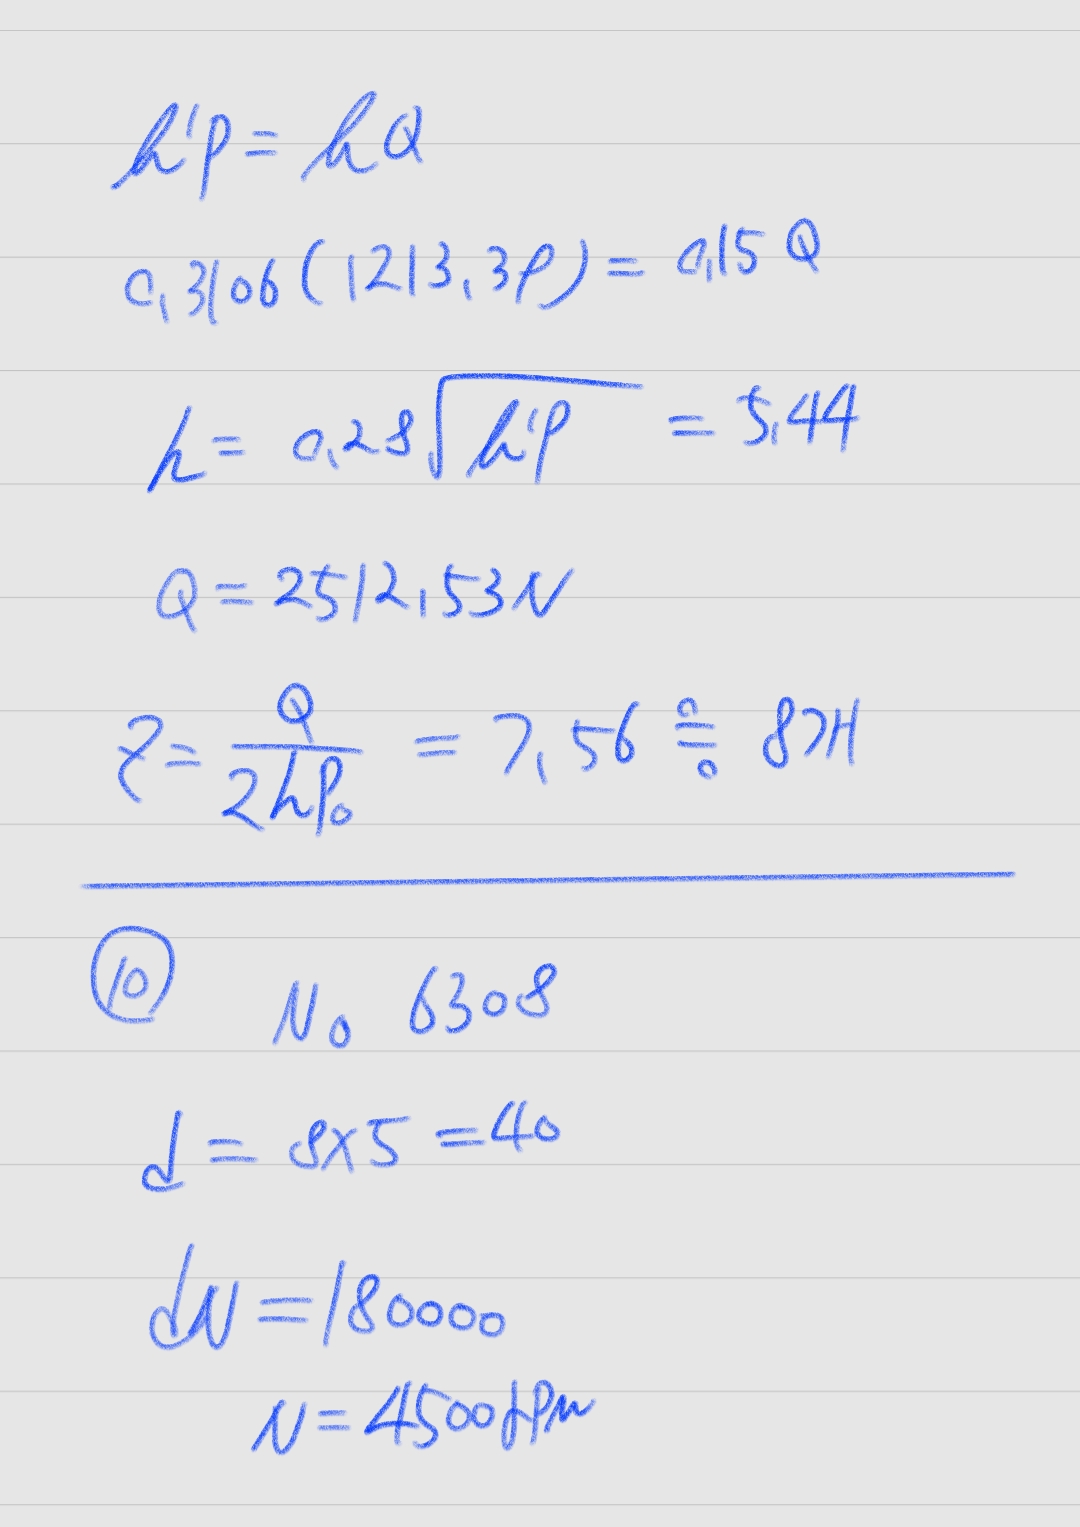 μ'P = μQ
0.3106(1213.3P) = 0.15Q
h = 0.28√μ'P = 5.44
Q = 2512.53N
Z = Q/2hP₀ = 7.56 ≒ 8개
⑩ No 6308
d = 8×5 = 40
dN = 180000
N = 4500rpm